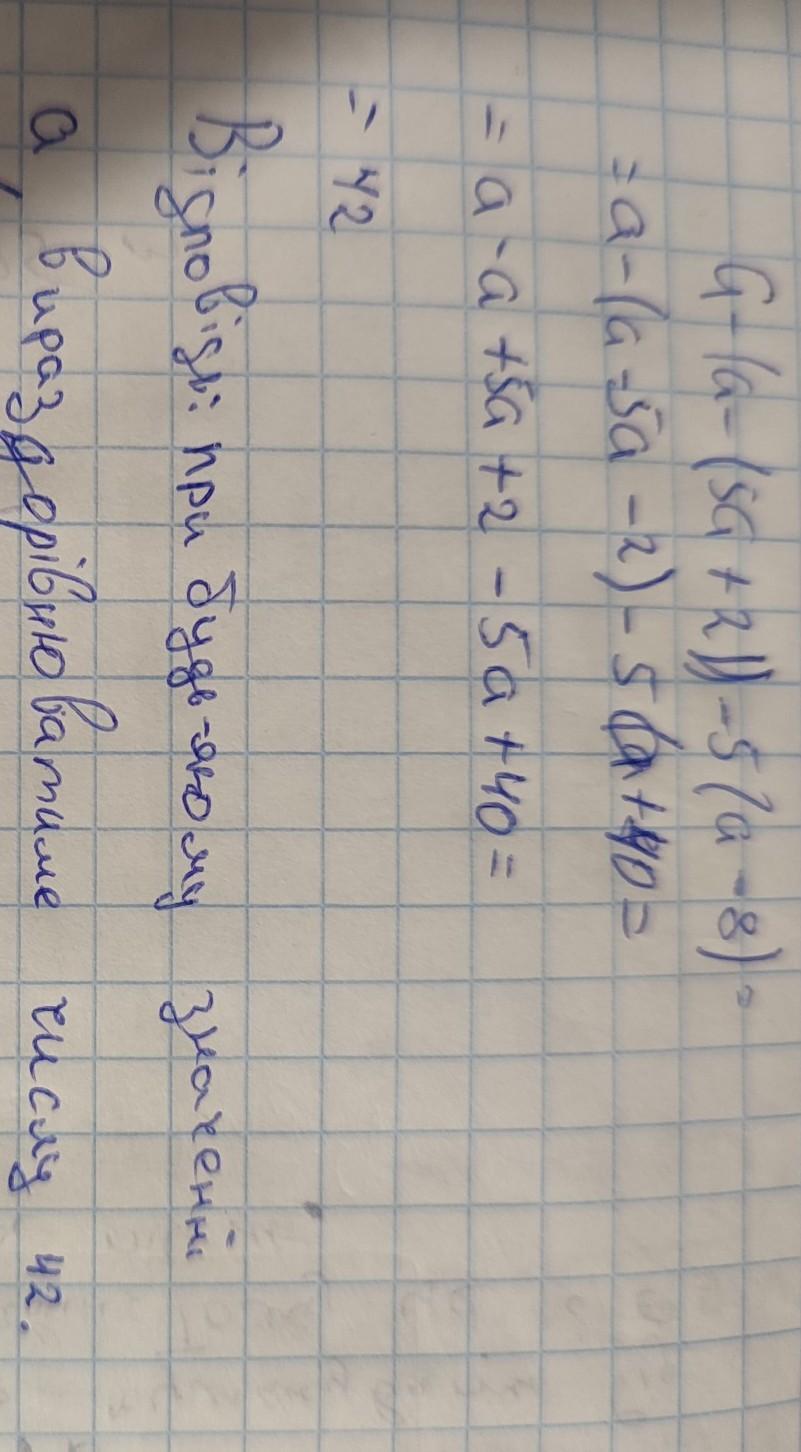 a - (a - (5a + 2)) - 5(a - 8) =
= a - (a - 5a - 2) - 5a + 40 =
= a - a + 5a + 2 - 5a + 40 =
= 42
Відповідь: при будь-якому значенні
а вираз дорівнюватиме числу 42.